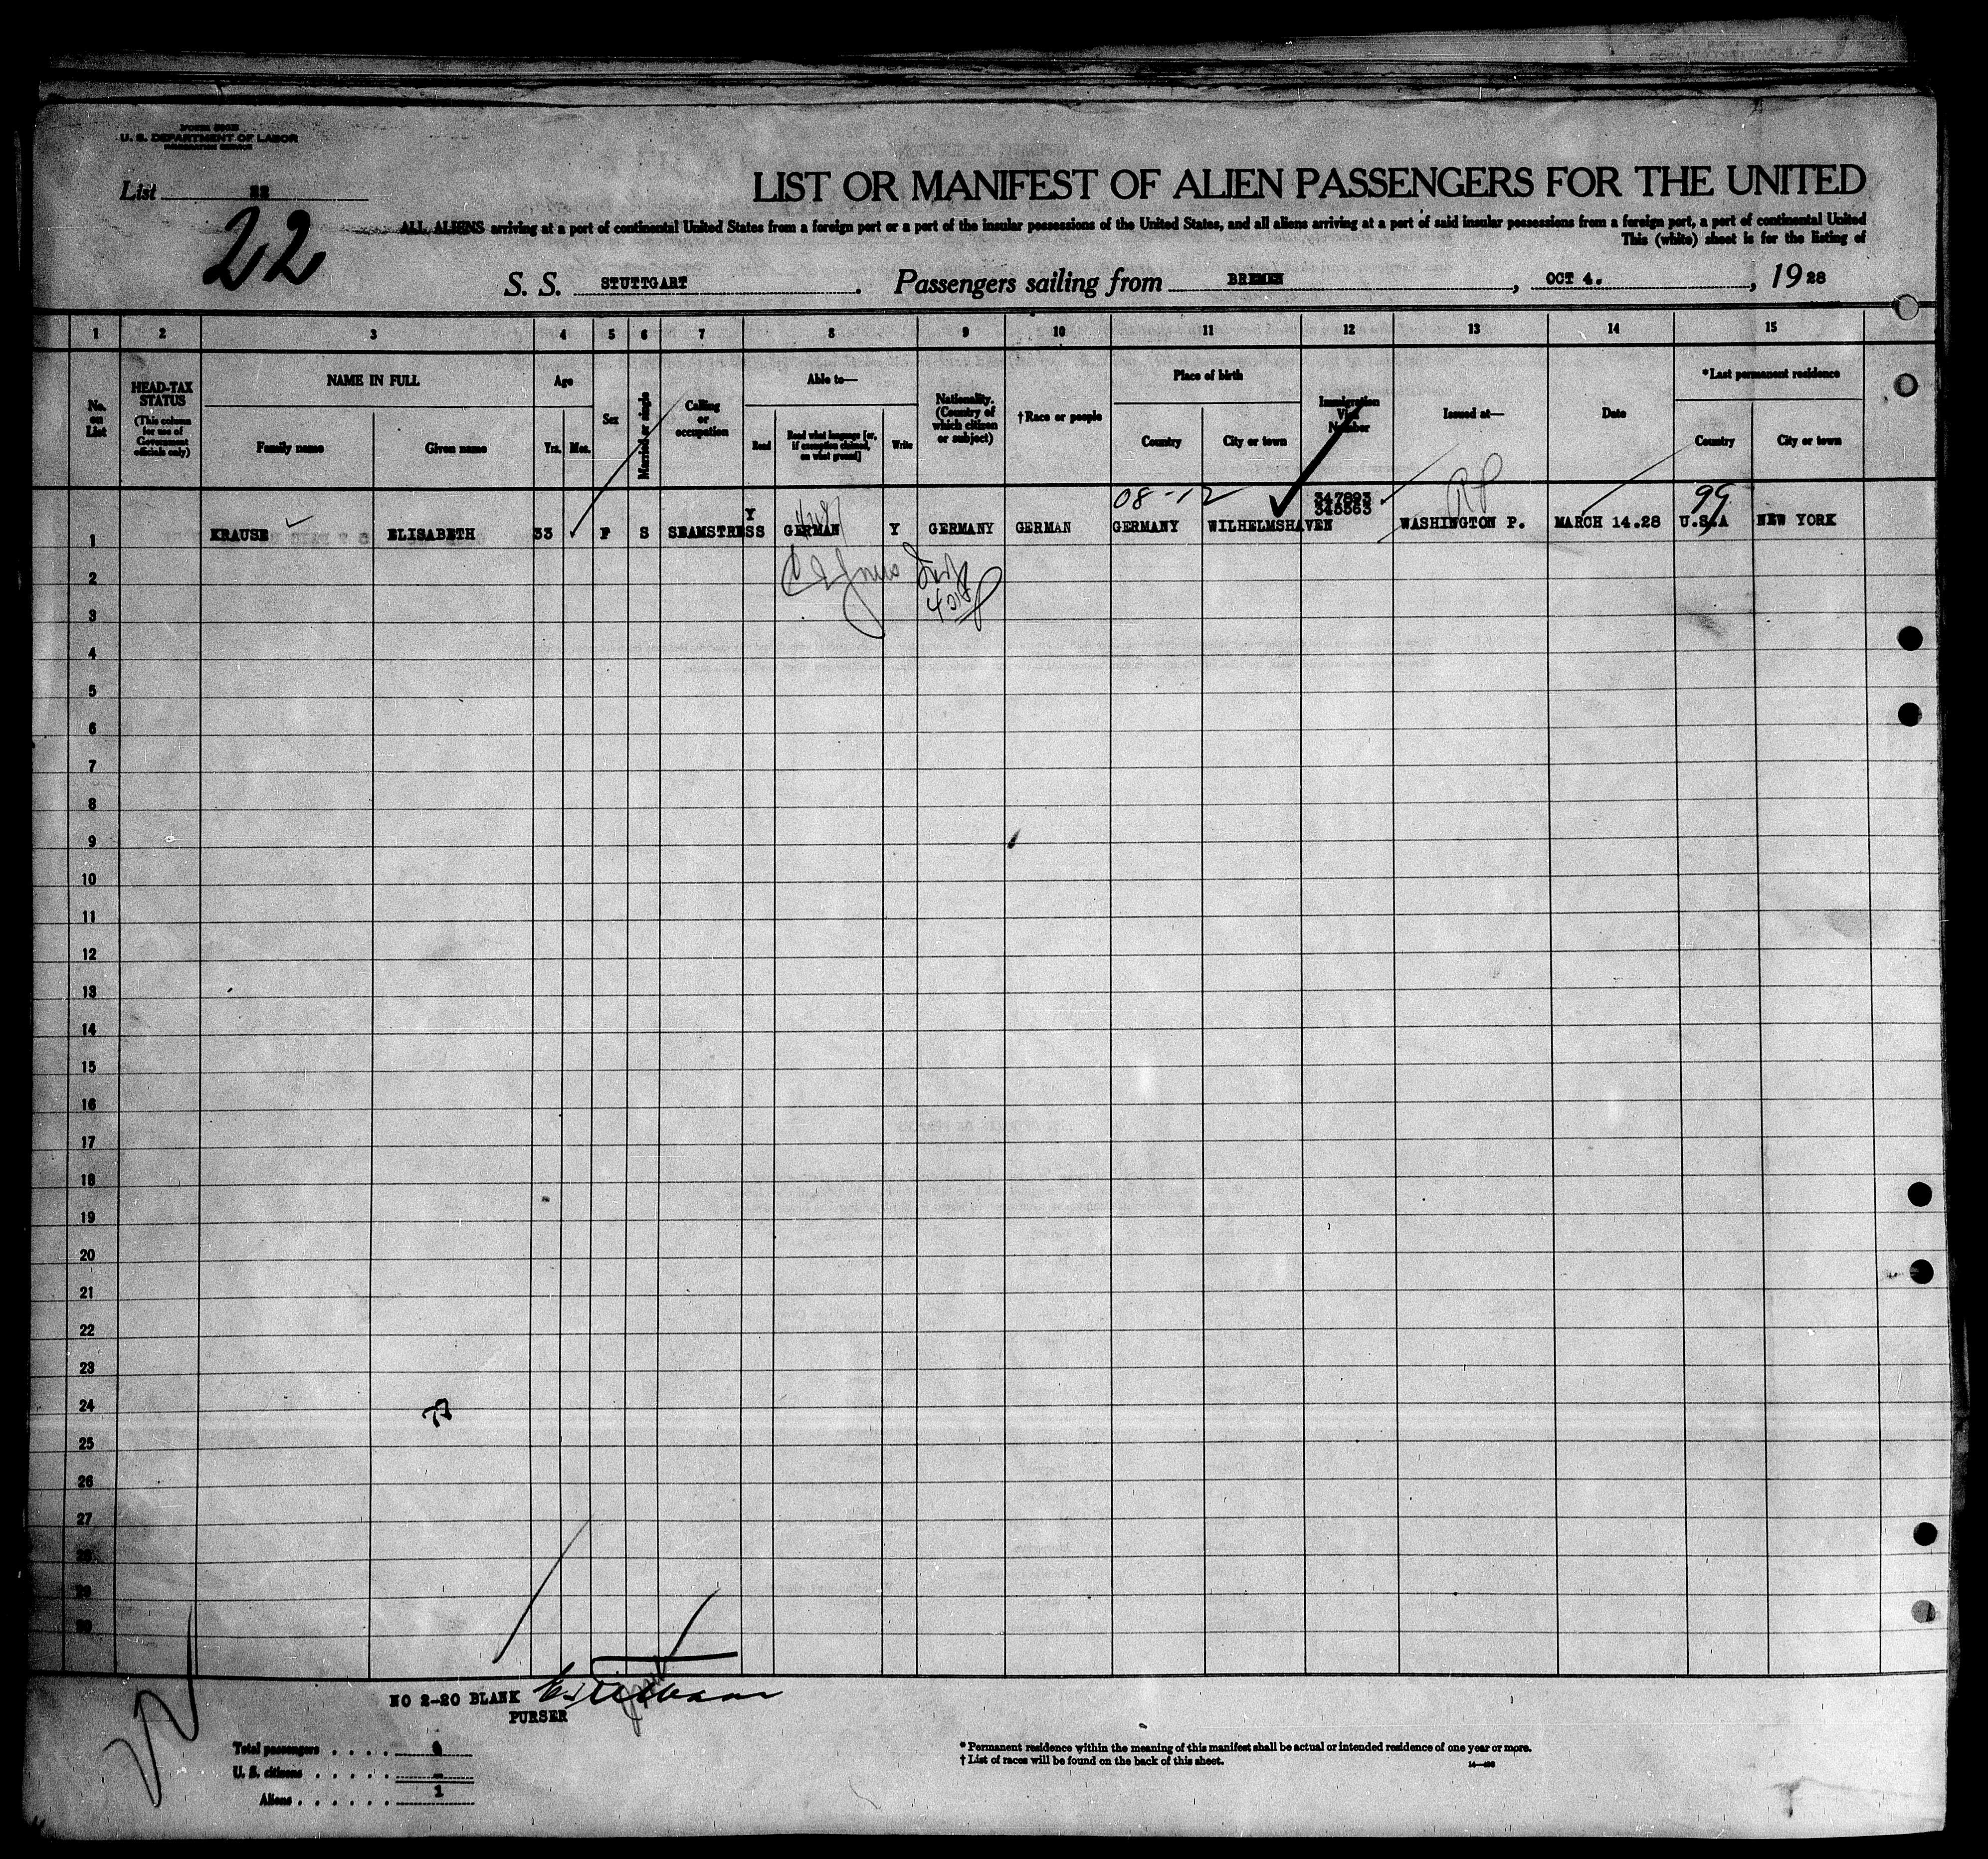 U. S. DEPARTMENT OF LABOR
List 22
22
LIST OR MANIFEST OF ALIEN PASSENGERS FOR THE UNITED
ALL ALIENS arriving at a port of continental United States from a foreign port or a port of the insular possessions of the United States, and all aliens arriving at a port of said insular possessions from a foreign port, a port of continental United
This (white) sheet is for the listing of
S. S. STUTTGART. Passengers sailing from BREMEN, OCT 4., 1928
1 2 3 4 5 6 7 8 9 10 11 12 13 14 15
No. on List
HEAD-TAX STATUS (This column for use of Government officials only)
NAME IN FULL
Family name Given name
Age
Yrs. Mos.
Sex
Married or single
Calling or occupation
Able to—
Read Read what language [or, if exemption claimed, on what ground] Write
Nationality. (Country of which citizen or subject)
†Race or people
Place of birth
Country City or town
Immigration Visa Number
Issued at—
Date
*Last permanent residence
Country City or town
08-12 99
347893
1 KRAUSE ELISABETH 33 F S SEAMSTRESS Y GERMAN Y GERMANY GERMAN GERMANY WILHELMSHAVEN WASHINGTON P. MARCH 14.28 U.S.A NEW YORK
2
3
4
5
6
7
8
9
10
11
12
13
14
15
16
17
18
19
20
21
22
23
24
25
26
27
28
29
30
NO 2-20 BLANK
PURSER
Total passengers
U. S. citizens -
Aliens 1
* Permanent residence within the meaning of this manifest shall be actual or intended residence of one year or more.
† List of races will be found on the back of this sheet.